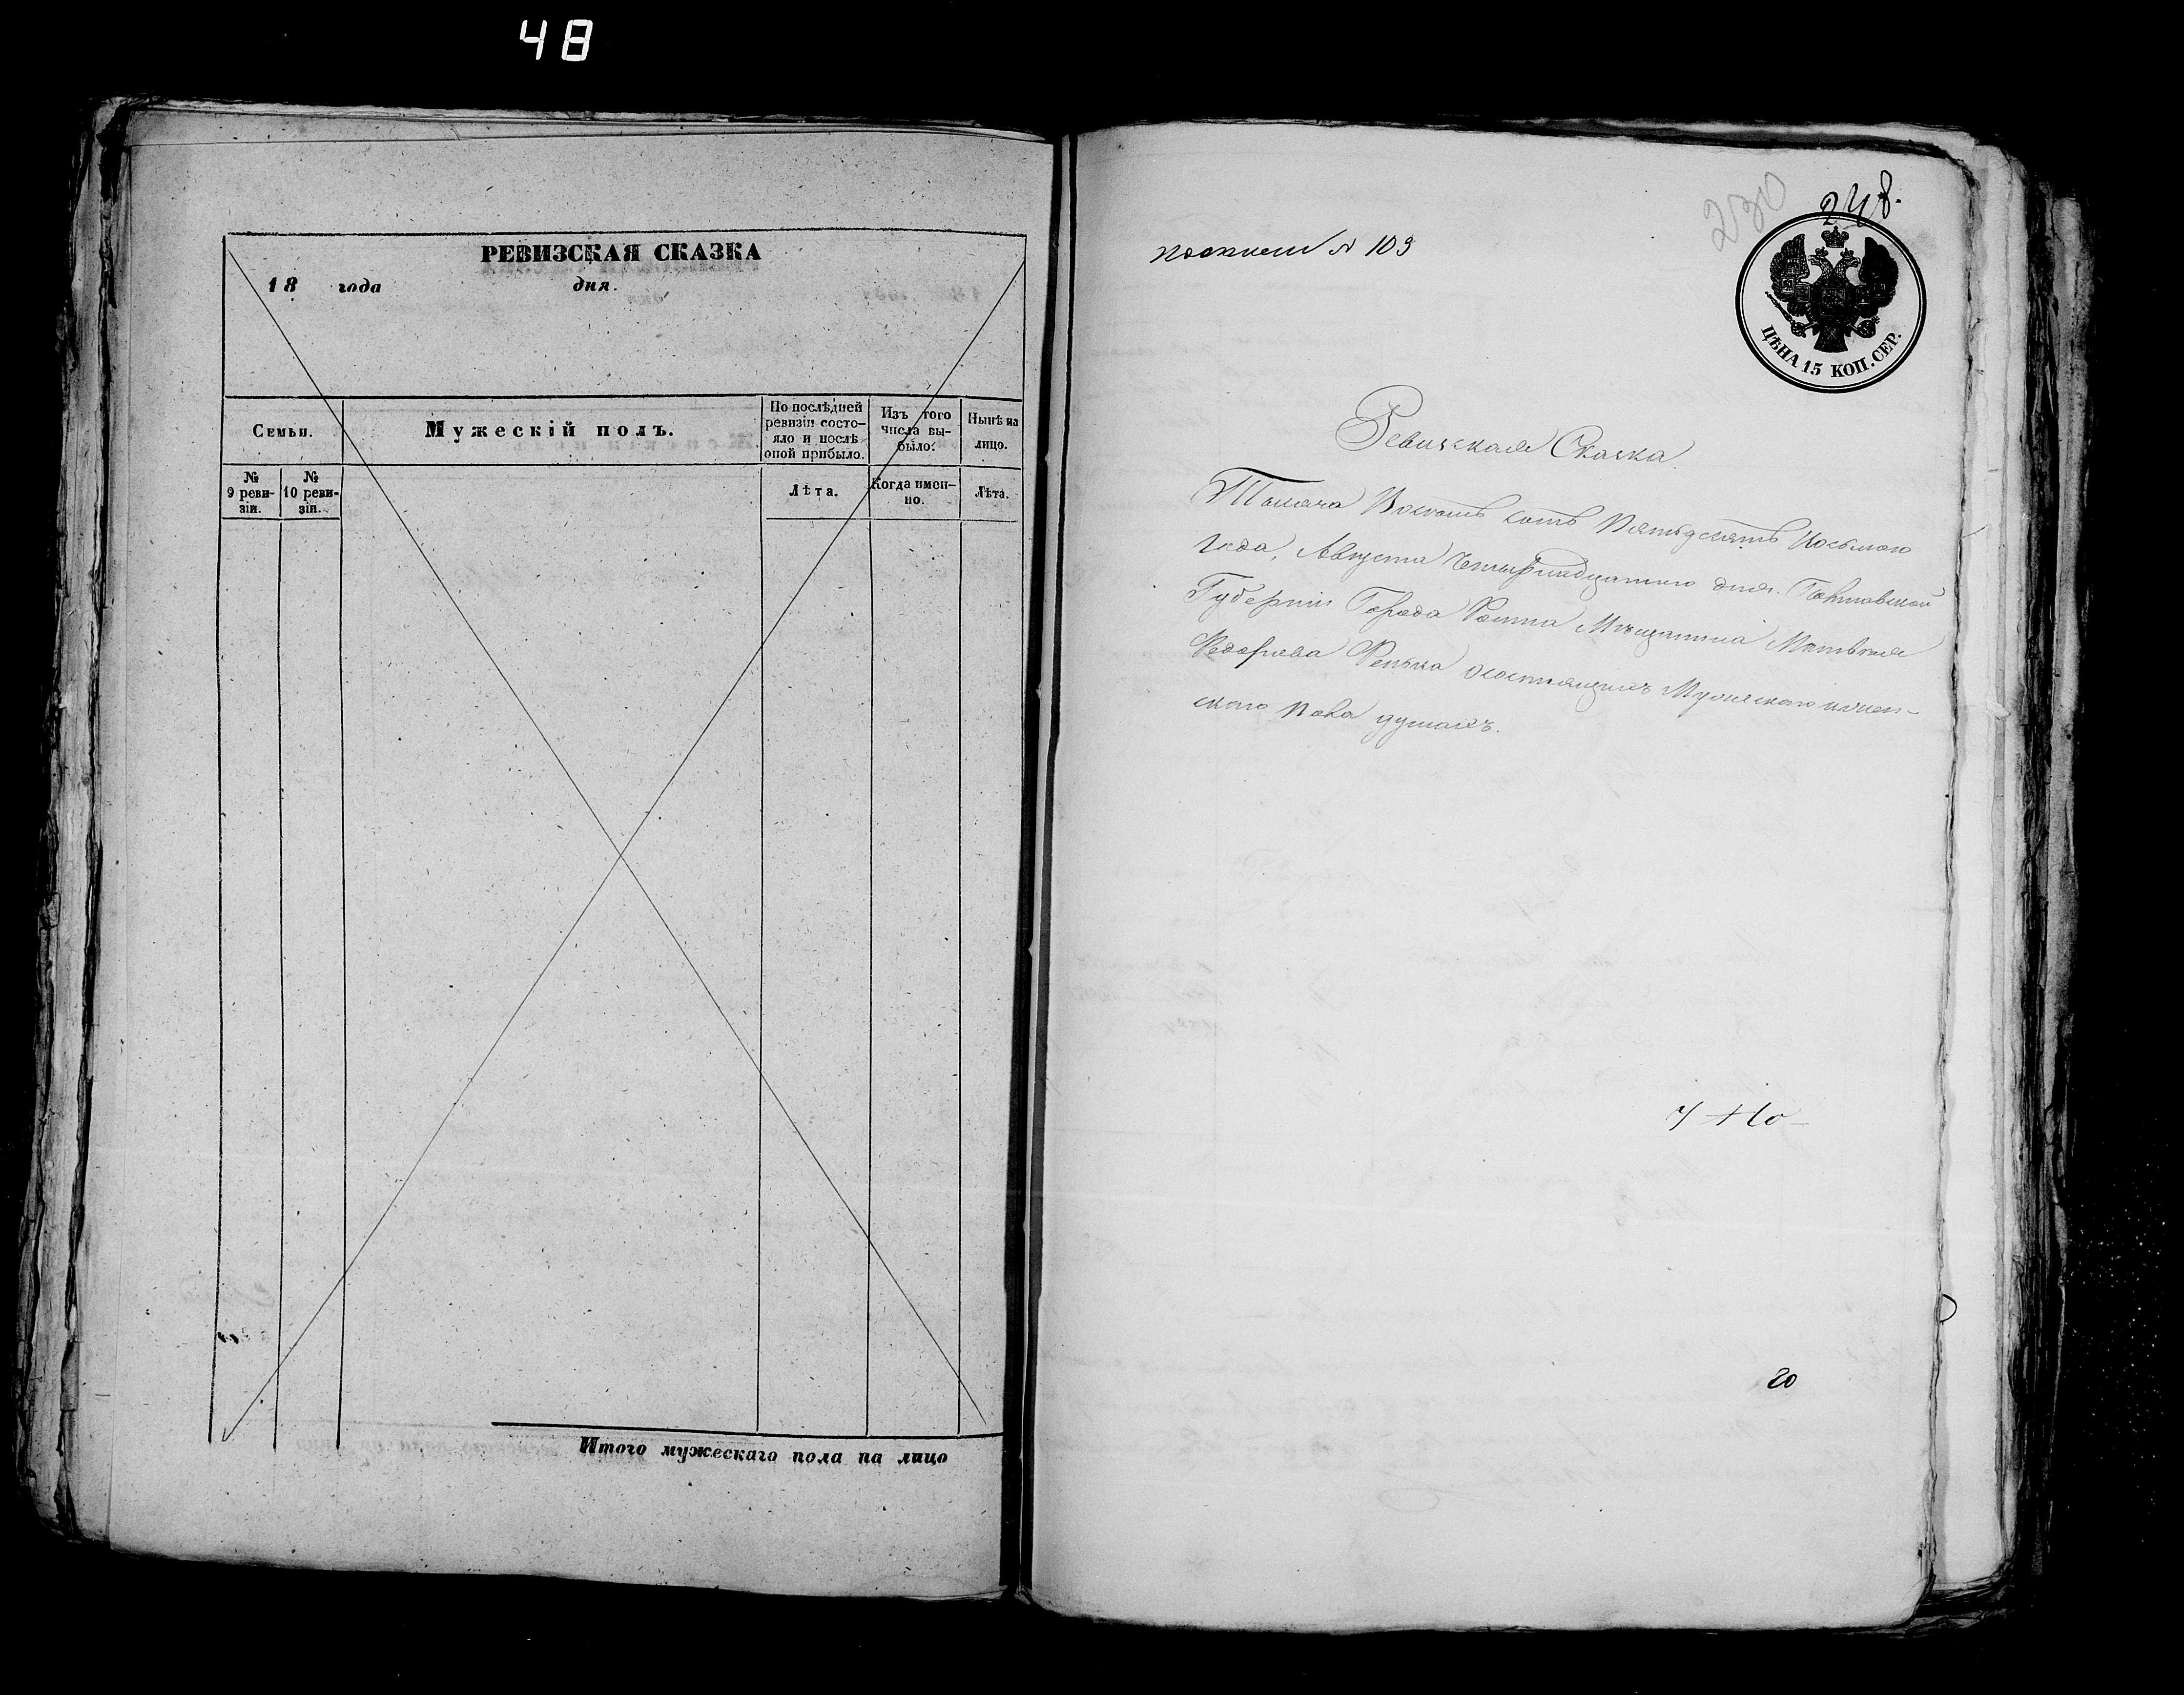 48
РЕВИЗСКАЯ СКАЗКА
18 года дня.
Семьи.
Мужескій полъ.
По послѣдней
ревизіи состо-
яло и послѣ
оной прибыло.
Изъ того
числа вы-
было.
Нынѣ на
лицо.
№
9 реви-
зіи.
№
10 реви-
зіи.
Лѣта.
Когда имен-
но.
Лѣта.
Итого мужескаго пола на лицо
230
248.
№ 109
ЦѢНА 15 КОП. СЕР.
Ревизкая Сказка
Тысяча Восемь сотъ Пятьдесятъ Восьмаго
Года, Августа Четырнадцатаго дня. Полтавской
Губерніи Города Мѣщанина Матвѣя
Федорова осостоящихъ Мужескаго ижен-
скаго пола душахъ.
20